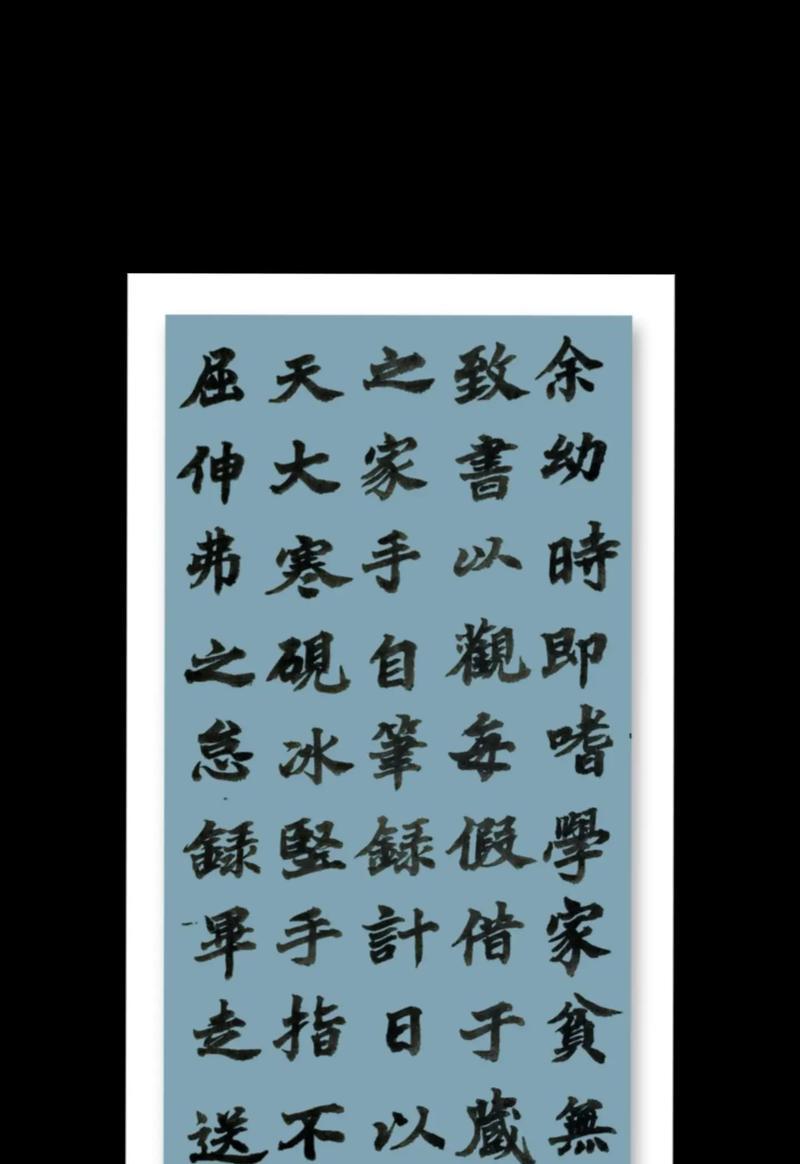 余幼時即嗜學家貧無
致書以觀每假借于蔵
之家手自筆録計日以
天大寒硯冰竪手指不
屈伸弗之怠録畢走送